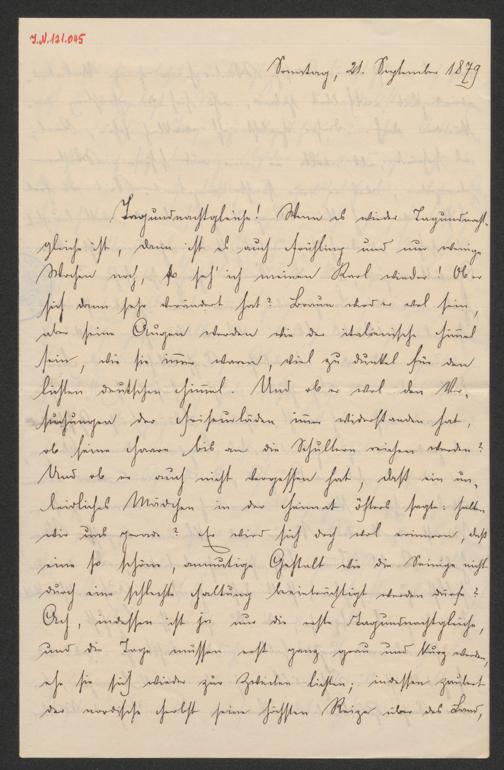 J.N. 121.045
Sonntag, 21. September 1879
Tagundnachtgleiche! Wenn es wieder Tagundnacht-
gleiche ist, dann ist es auch Frühling und nur wenige
Wochen noch, so seh' ich meinen Karl wieder! Ob er
sich dann sehr verändert hat? Braun wird er wol sein,
aber seine Augen werden wie der italienische Himmel
sein, wie sie immer waren, viel zu dunkel für den
lichten deutschen Himmel. Und ob er wol den Ver-
suchungen der Friseurläden immer widerstanden hat,
ob seine Haare bis an die Schultern reichen werden?
Und ob er auch nicht vergessen hat, daß ein un-
leidliches Mädchen in der Heimat öfters sagte: halten
wir uns gerade? Er wird sich doch wol erinnern, daß
eine so schöne, anmutige Gestalt wie die Seinige nicht
durch eine schlechte Haltung beeinträchtigt werden dürfe?
Ach, indessen ist ja nur die erste Tagundnachtgleiche,
und die Tage müssen erst ganz grau und kurz werden,
ehe sie sich wieder zur lichten; indessen zaubert
der nordische Herbst seine höchsten Reize über das Land,